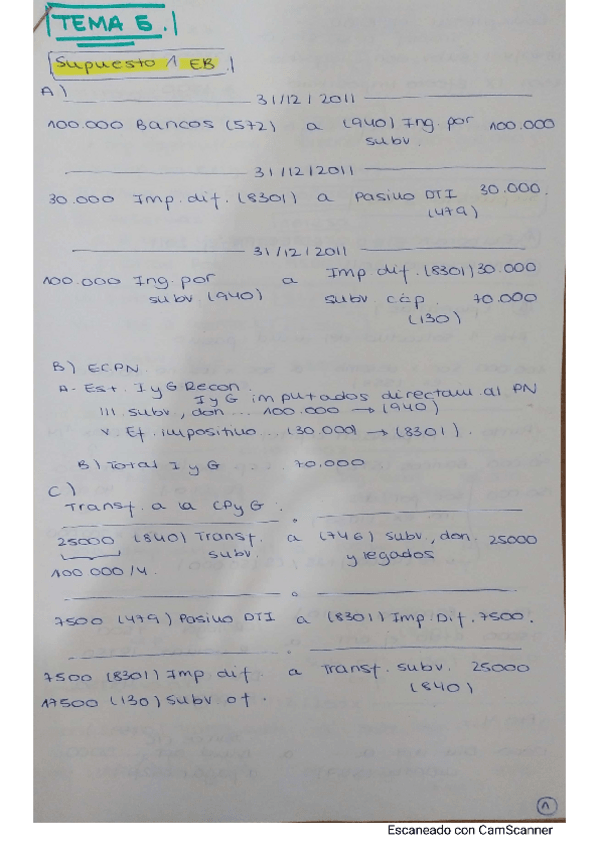 TEMA 5.
Supuesto 1 EB.
A)
31/12/2011
100.000 Bancos (572) a (940) Ing. por 100.000
subv.
31/12/2011
30.000 Imp. dif. (8301) a Pasivo DTI 30.000.
(479)
31/12/2011
100.000 Ing. por a Imp dif. (8301) 30.000
subv. (940) subv. cap. 70.000
(130)
B) ECPN.
A. Est. I y G Recon.
I y G imputados directam. al PN
III. subv, don ... 100.000 → (940)
V. Ef. impositivo ... (30.000) → (8301).
B) Total I y G 70.000
C)
Transf. a la CPyG.
25000 (840) Transf. a (746) subv, don. 25000
subv. y legados
100 000/4.
7500 (479) Pasivo DTI a (8301) Imp. Dif. 7500.
7500 (8301) Imp. dif a Transf. subv. 25000
17500 (130) Subv. of. (840)
1
Escaneado con CamScanner